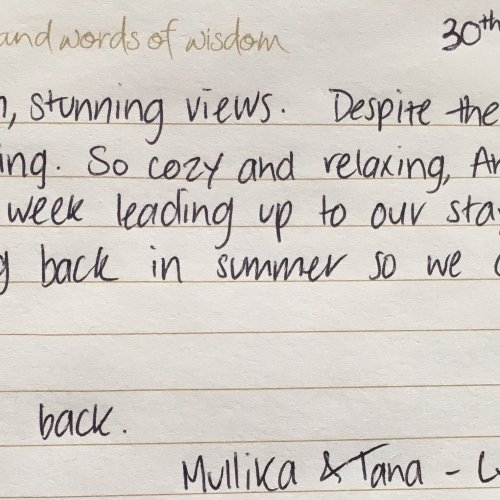 and words of wisdom
30th
, stunning views. Despite the
ing. So cozy and relaxing,
week leading up to our stay
back in summer so we
back.
Mullika & Tana -